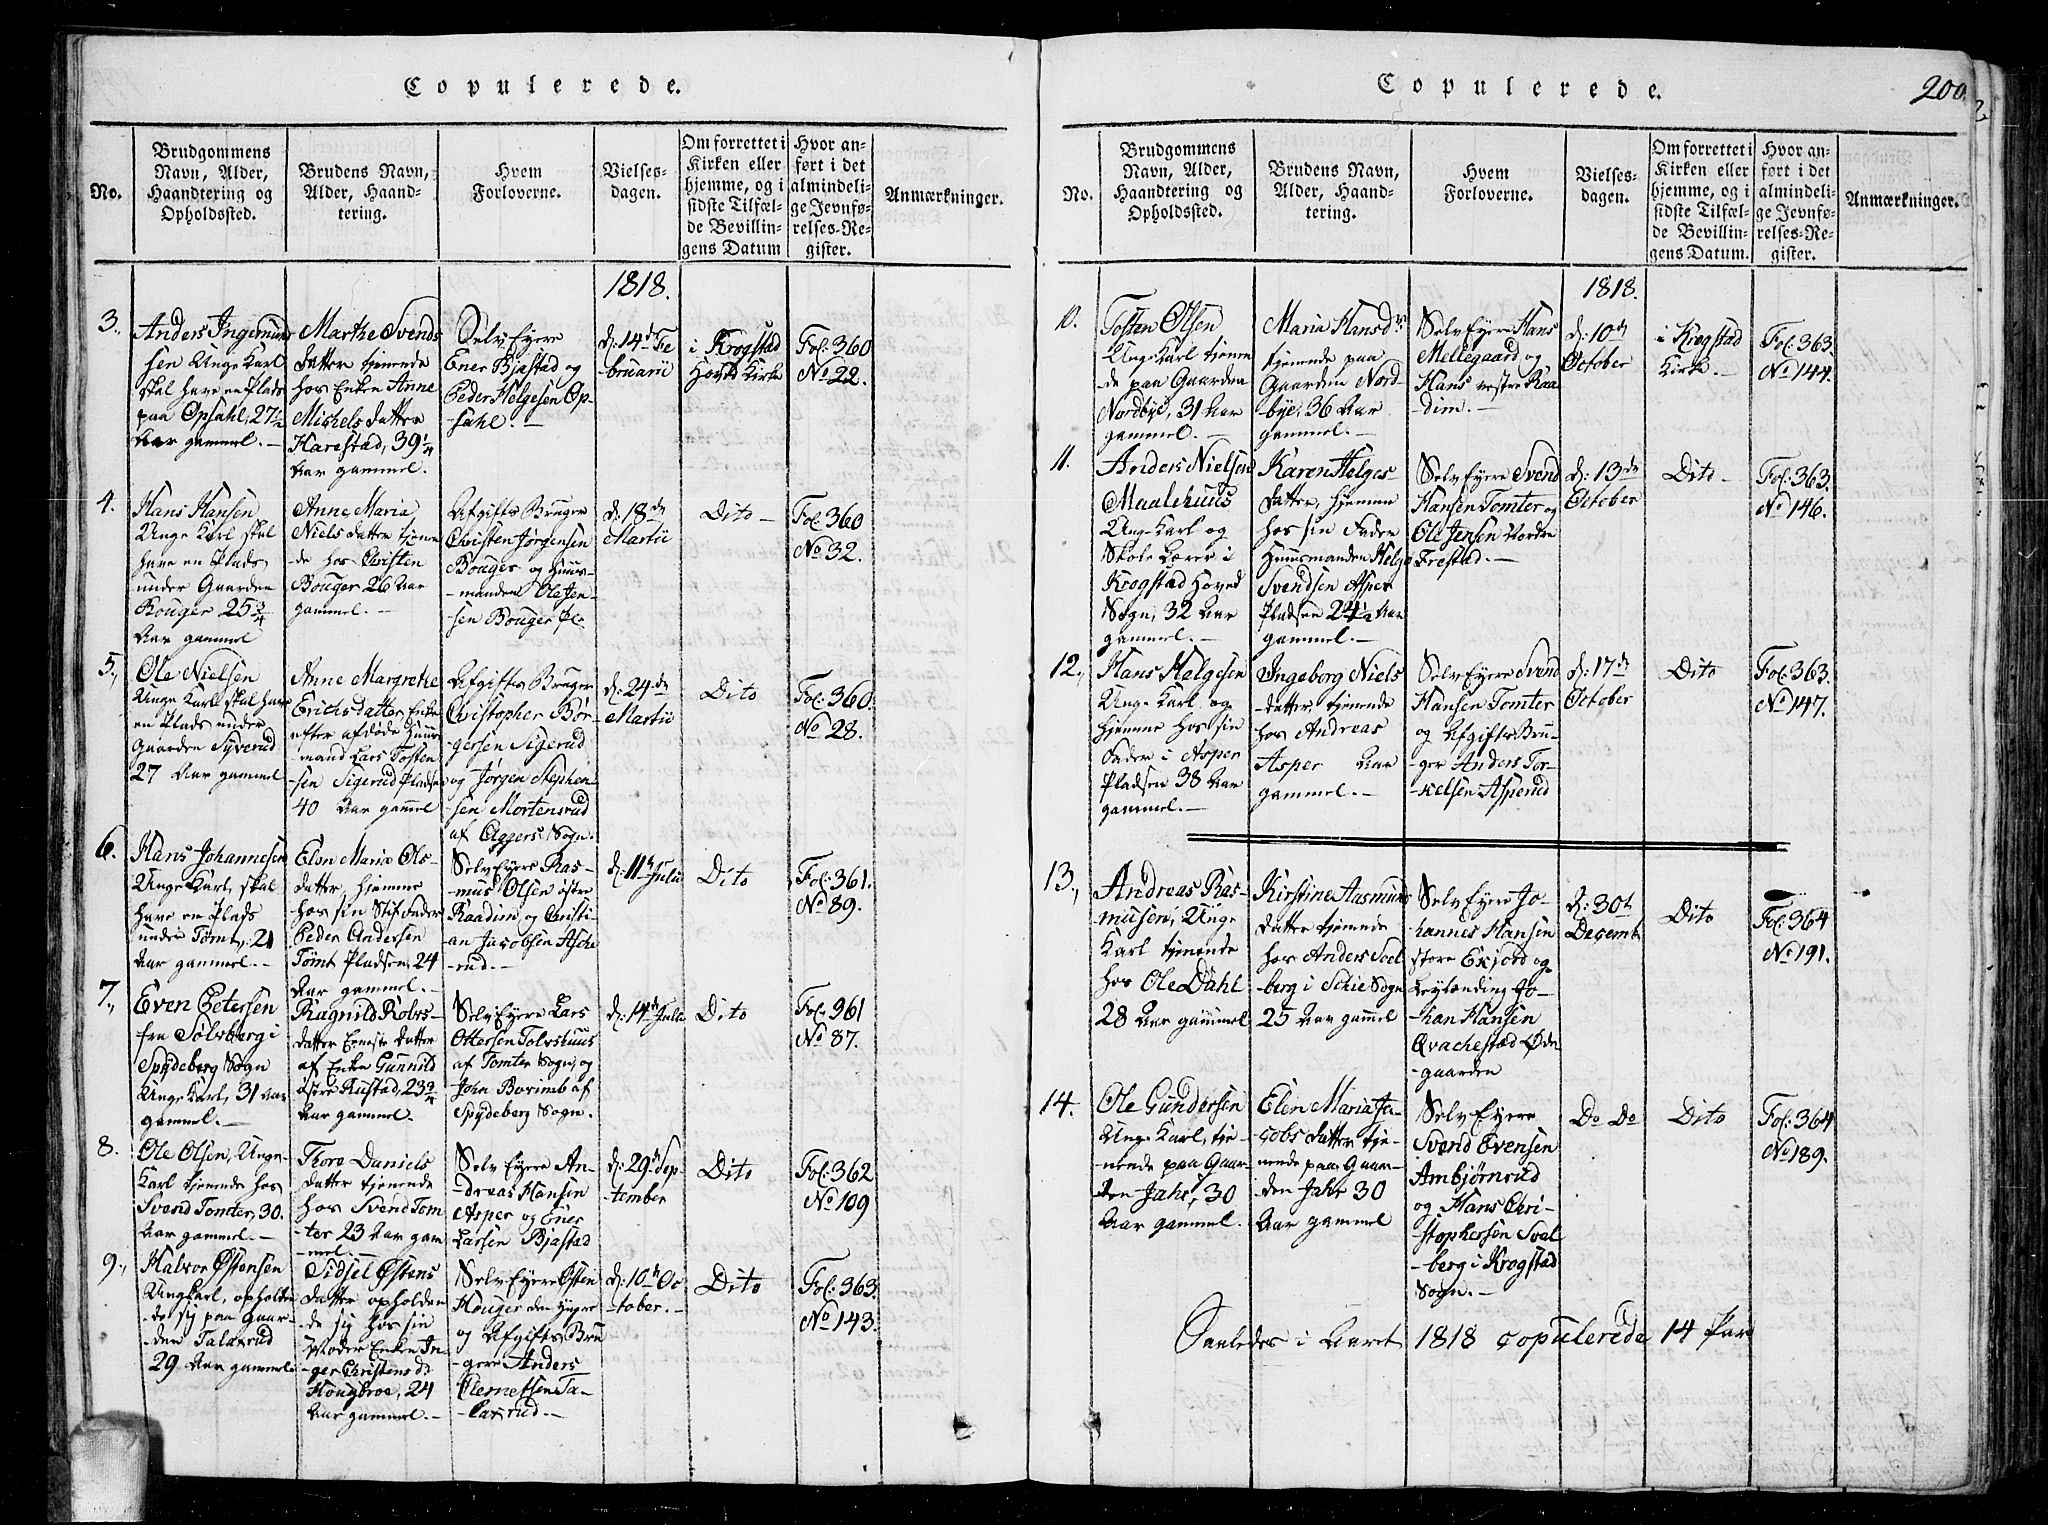 Copulerede.
No.
Brudgommens
Navn, Alder,
Haandtering og
Opholdssted.
Brudens Navn,
Alder, Haand-
tering.
Hvem
Forloverne.
Vielses-
dagen.
Om forrettet i
Kirken eller
hjemme, og i
sidste Tilfæl-
de Bevillin-
gens Datum
Hvor an-
ført i det
almindeli-
ge Jevnfø-
relses-Re-
gister.
Anmærkninger.
1818.
3.,
Anders Ingemund
sen Unge Karl
skal have en Plads
paa Opsahl, 27½
Aar gammel. -
Marthe Svends
datter tjenende
hos Enken Anne
Michels datter
Harestad, 39¼
Aar gammel.
Selv Eyere
Ener Bjastad og
Peder Helgesen Op-
sahl. -
d: 14de Fe
bruarii
i Krogstad
Hoved Kirke
Fol: 360
No 22.
4.
Hans Hansen
Unge Karl skal
have en Plads
under Gaarden
Bouger 25¾
Aar gammel
Anne Maria
Niels datter tjenen
de hos Christen
Bouger 26 Aar
gammel. -
Afgifts Bruger
Christen Jørgensen
Bouger og Huus-
manden Ole Jen-
sen Bouger Pl:
d: 18de
Martii
Dito -
Fol: 360
No 32.
5.,
Ole Nielsen
Unge Karl skal have
en Plads under
Gaarden Syverud
27 Aar gammel
Anne Margrethe
Erichsdatter Enke
efter afdøde Huus
mand Lars Tosten
sen Sigerud Pladsen
40 Aar gammel
Afgifts Bruger
Christopher Bør-
gersen Sigerud
og Jørgen Stephen
sen Mortensrud
af Aggers Sogn.
d: 24de
Martii
Dito
Fol: 360.
No 28.
6.
Hans Johannesen
Unge Karl, skal
have en Plads
under Tømt, 21
Aar gammel. -
Elen Maria Ols-
datter, hjemme
hos sin Stiffader
Peder Andersen
Tømt Pladsen, 24
Aar gammel. -
Selv Eyere Ras-
mus Olsen østre
Raadim, og Christi-
an Jacobsen Asche
rud. -
d: 11te Julii
Dito
Fol: 361.
No 89.
7.,
Even Petersen
fra Sølvberg i
Spydeberg Sogn
Unge Karl, 31 Aar
gammel. -
Ragnild Rolvs-
datter Eeneste datter
af Enke Gunnild
østre Rustad, 23¾
Aar gammel.
Selv Eyere Lars
Ottersen Tolvshuus
af Tomter Sogn, og
John Borimb af
Spydeberg Sogn.
d: 14de Julii
Dito
Fol: 361
No 87.
8.
Ole Olsen, Unge
Karl tjenende hos
Svend Tomter, 30.
Aar gammel. -
Thore Daniels
datter tjenende
hos Svend Tom
ter 23 Aar gam
mel. -
Selv Eyere An-
dreas Hansen
Asper og Ener
Larsen Bjastad
d: 29de Sep
tember
Dito
Fol: 362
No 109
9.,
Halvor Østensen
Ungkarl, opholden
de sig paa Gaar-
den Talaxrud
29 Aar gammel
Sidsel Østens
datter opholden
de sig hos sin
Moder Enken In-
ger Christensdr
Hougbroe, 24
Aar gammel. -
Selv Eyere Østen
Houger den yngre
og Afgifts Bru
gere Anders
Clemetsen Ta-
laxrud. -
d: 10de Oc
tober. -
Dito
Fol: 363.
No 143.
Copulerede.
200.
No.
Brudgommens
Navn, Alder,
Haandtering og
Opholdssted.
Brudens Navn,
Alder, Haand-
tering.
Hvem
Forloverne.
Vielses-
dagen.
Om forrettet i
Kirken eller
hjemme, og i
sidste Tilfæl-
de Bevillin-
gens Datum.
Hvor an-
ført i det
almindeli-
ge Jevnfø-
relses-Re-
gister.
Anmærkninger.
1818.
10.
Tosten Olsen
Unge Karl tjenen
de paa Gaarden
Nordbye, 31 Aar
gammel. -
Maria Hansdr
tjenende paa
Gaarden Nord-
bye, 36 Aar
gammel. -
Selv Eyere Hans
Mellegaard og
Hans vestre Raa
dim. -
d: 10de
October
i Krogstad
Kirke. -
Fol: 363.
No 144.
11.
Anders Nielsen
Maalehuus
Unge Karl og
Skole Lærer i
Krogstad Hoved
Sogn, 32 Aar
gammel. -
Karen Helges-
datter, hjemme
hos sin Fader
Huusmanden Helge
Svendsen Asper
Pladsen 24½ Aar
gammel. -
Selv Eyere Svend
Hansen Tomter og
Ole Jensen Nordre
Frestad. -
d: 13de
October
Dito -
Fol: 363.
No 146.
12.,
Hans Helgesen
Unge Karl, og
hjemme hos sin
Fader i Asper
Pladsen 38 Aar
gammel. -
Ingeborg Niels
datter, tjenende
hos Andreas
Asper Aar
gammel. -
Selv Eyere Svend
Hansen Tomter
og Afgifts Bru-
ger Anders Tor-
kelsen Asperud
d: 17de
October
Dito
Fol: 363.
No 147.
13.,
Andreas Ras-
musen, Unge
Karl tjenende
hos Ole Dahl
28 Aar gammel
Kirstine Asmunds
datter tjenende
hos Anders Soel
berg i Schie Sogn
25 Aar gammel
Selv Eyere Jo-
hannes Hansen
store Exjord og
Leylænding Jo-
han Hansen
Qvachestad Øde
gaarden
d: 30te
Decemb.
Dito
Fol: 364
No 191.
14.
Ole Gundersen
Unge Karl, tje-
nende paa Gaar-
den Jahr, 30
Aar gammel.
Elen Maria Ja-
cobs datter tje-
nende paa Gaar-
den Jahr 30
Aar gammel
Selv Eyere
Svend Evensen
Ambjørnrud
og Hans Chri-
stophersen Soel
berg i Krogstad
Sogn. -
Do Do
Dito
Fol: 364
No 189.
Saaledes i Aaret 1818 copulerede 14 Par